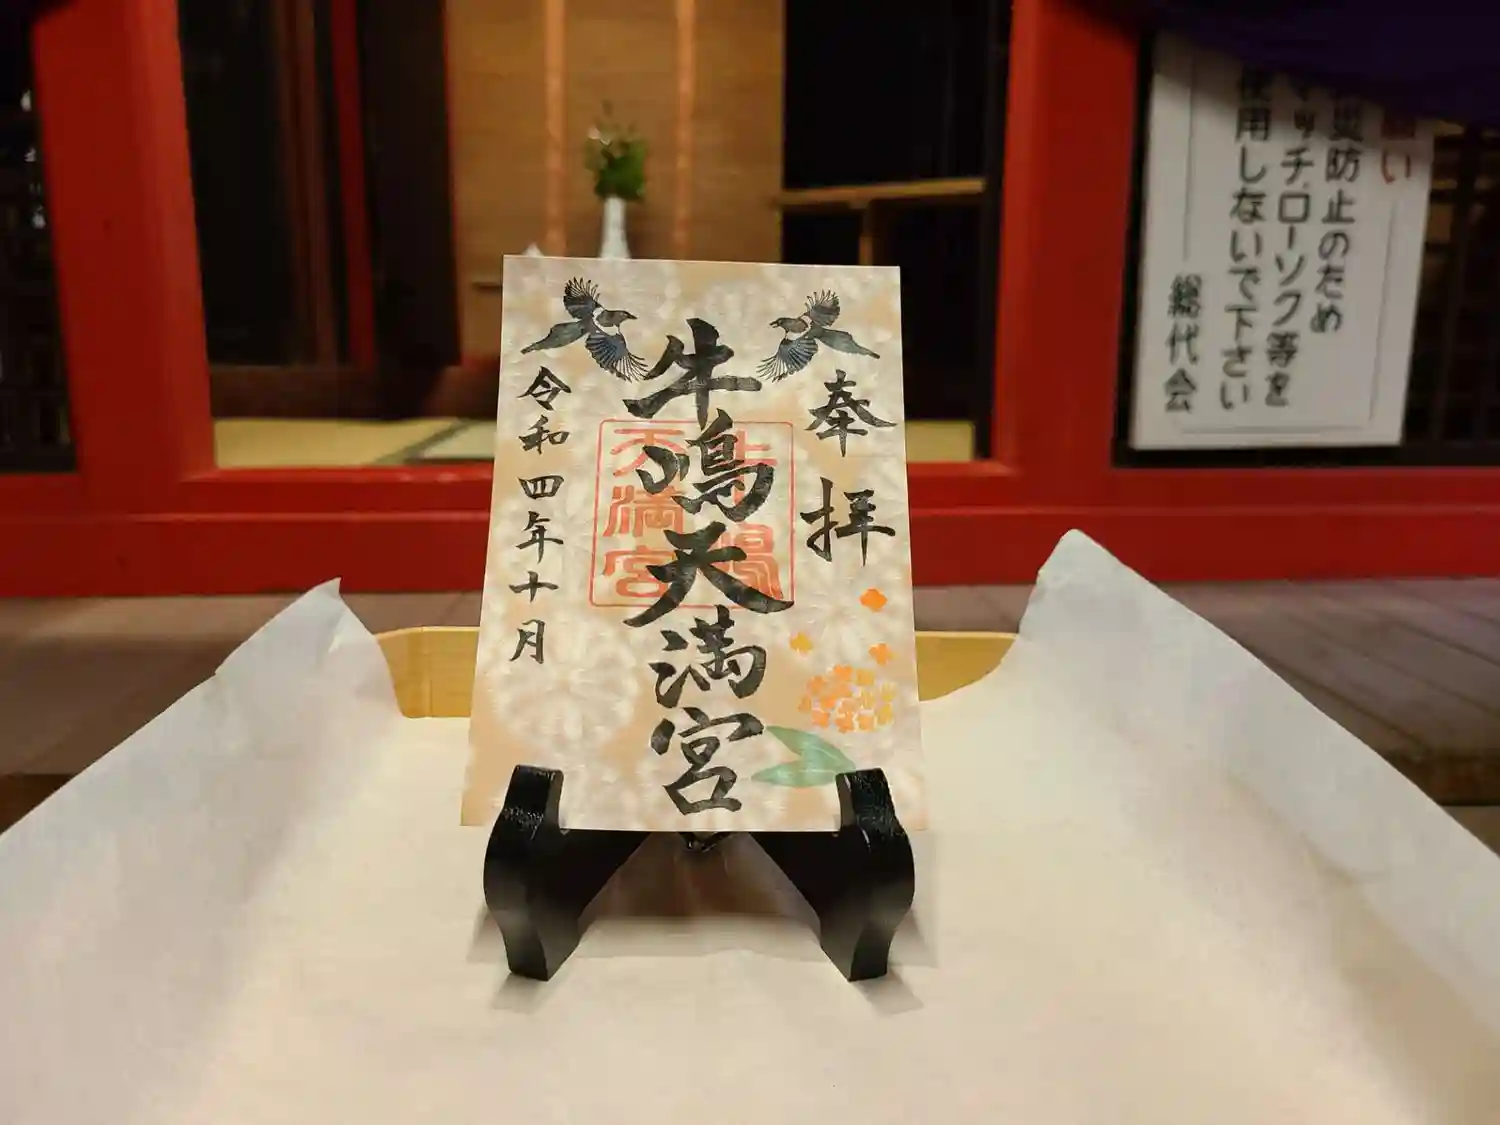 奉拝
牛嶋天満宮
天満宮
令和四年十月
災防止のため
マッチ.ローソク等を
使用しないで下さい
総代会